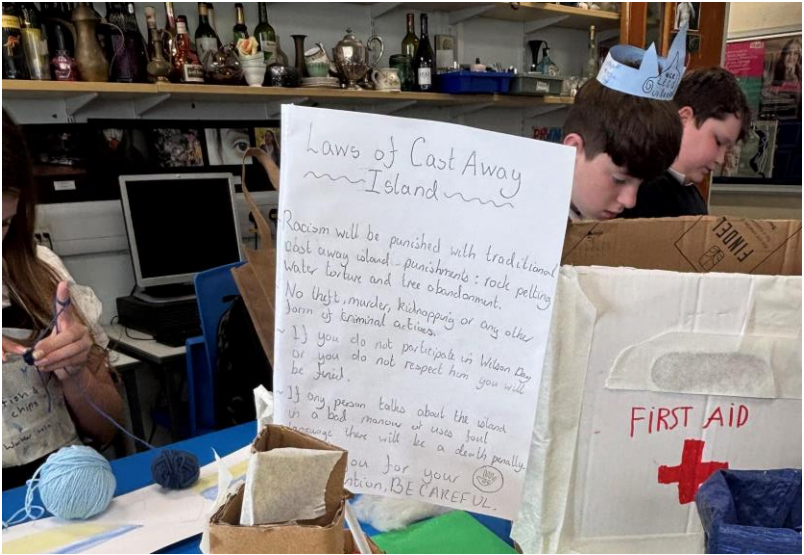 Laws of Cast Away
Island
Racism will be punished with traditional
cast away island punishments: rock pelting
Water torture and tree abandonment.
No theft, murder, kidnapping or any other
form of criminal actives.
~ If you do not participate in Wilson Day
or you do not respect him you will
be
~ If any person talks about the island
in a bad manow or uses foul
language there will be a death penally.
ou for your
ention, BE CAREFUL.
FINDEL
FIRST AID
fish
chips